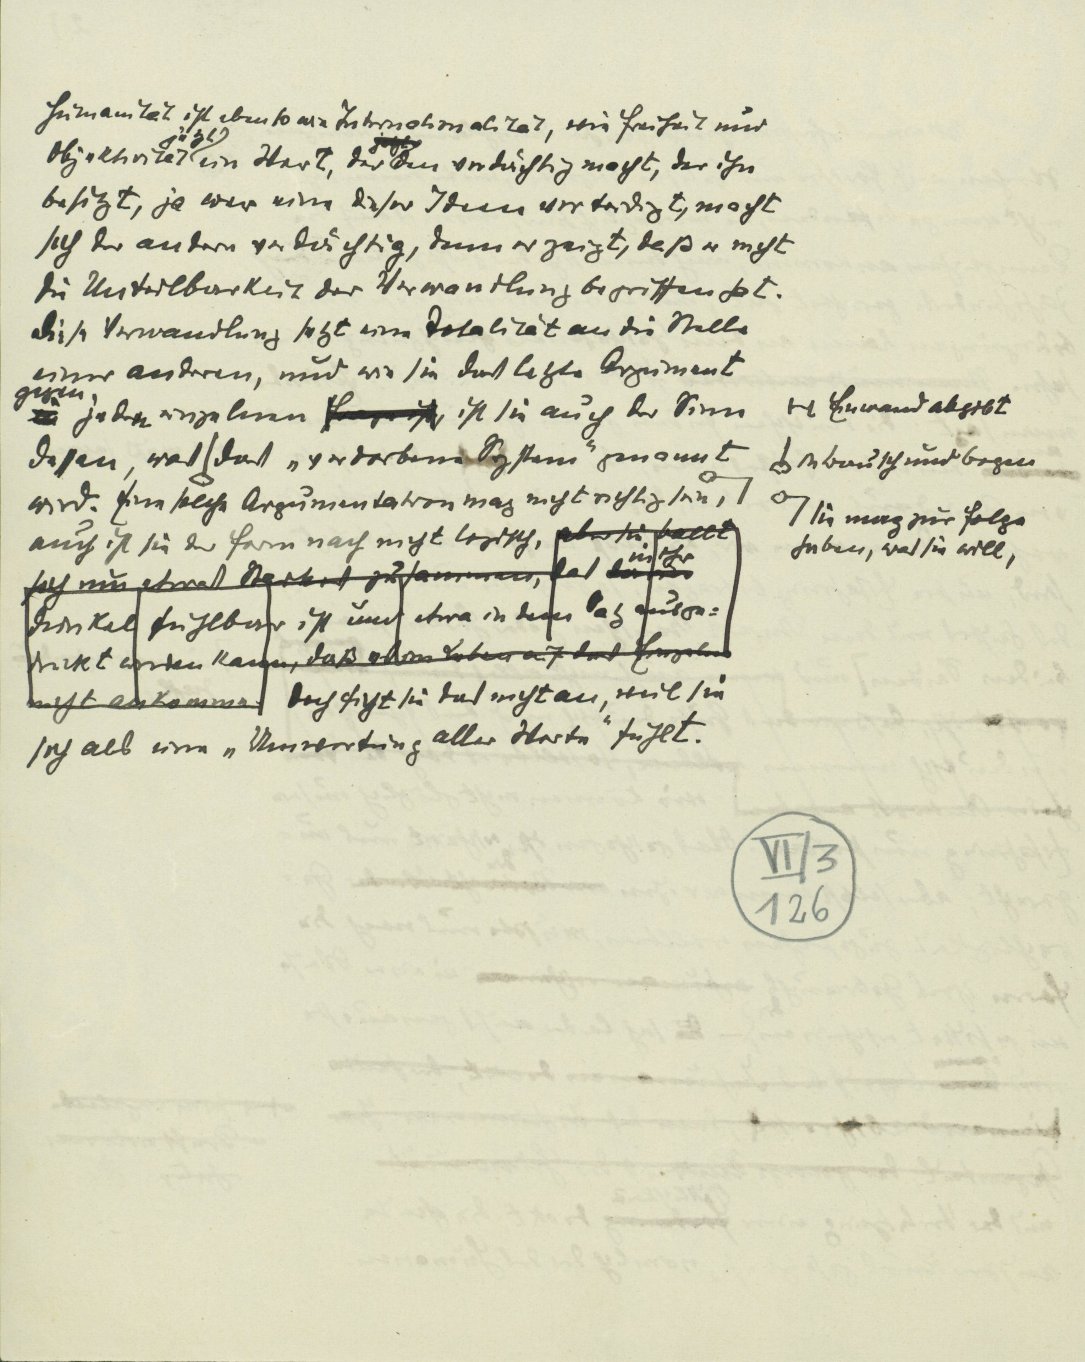 Humanität ist ebenso wie Internationalität, wie Freiheit und
jetzt jetzt
Objektivität ein Wort, das den verdächtig macht, der ihn
besitzt, ja wer eine dieser Ideen verteidigt, macht
sich der andern verdächtig, denn er zeigt, daß er nicht
die Unteilbarkeit der Verwandlung begriffen hat.
Diese Verwandlung setzt eine Totalität an die Stelle
einer anderen, und wie sie das letzte Argument
gegen
jeden einzelnen ist sie auch der Sinn
dessen, was das „verdorbene System“ genannt
wird. Eine solche Argumentation mag nicht richtig sein,
auch ist sie der Form nach nicht logisch, aber sie ballt
in ihr
sich nun etwas Starkes zusammen, das
dunkel fühlbar ist und etwa in dem Satz ausge=
drückt werden kann, daß eben Leben auf das Einzelne
nicht ankomme. Doch ficht sie das nicht an, weil sie
sich als eine „Umwertung aller Werte“ fühlt.
Einwand abgibt
und
Sie mag zur Folge
haben, was sie will,
VI/3
126